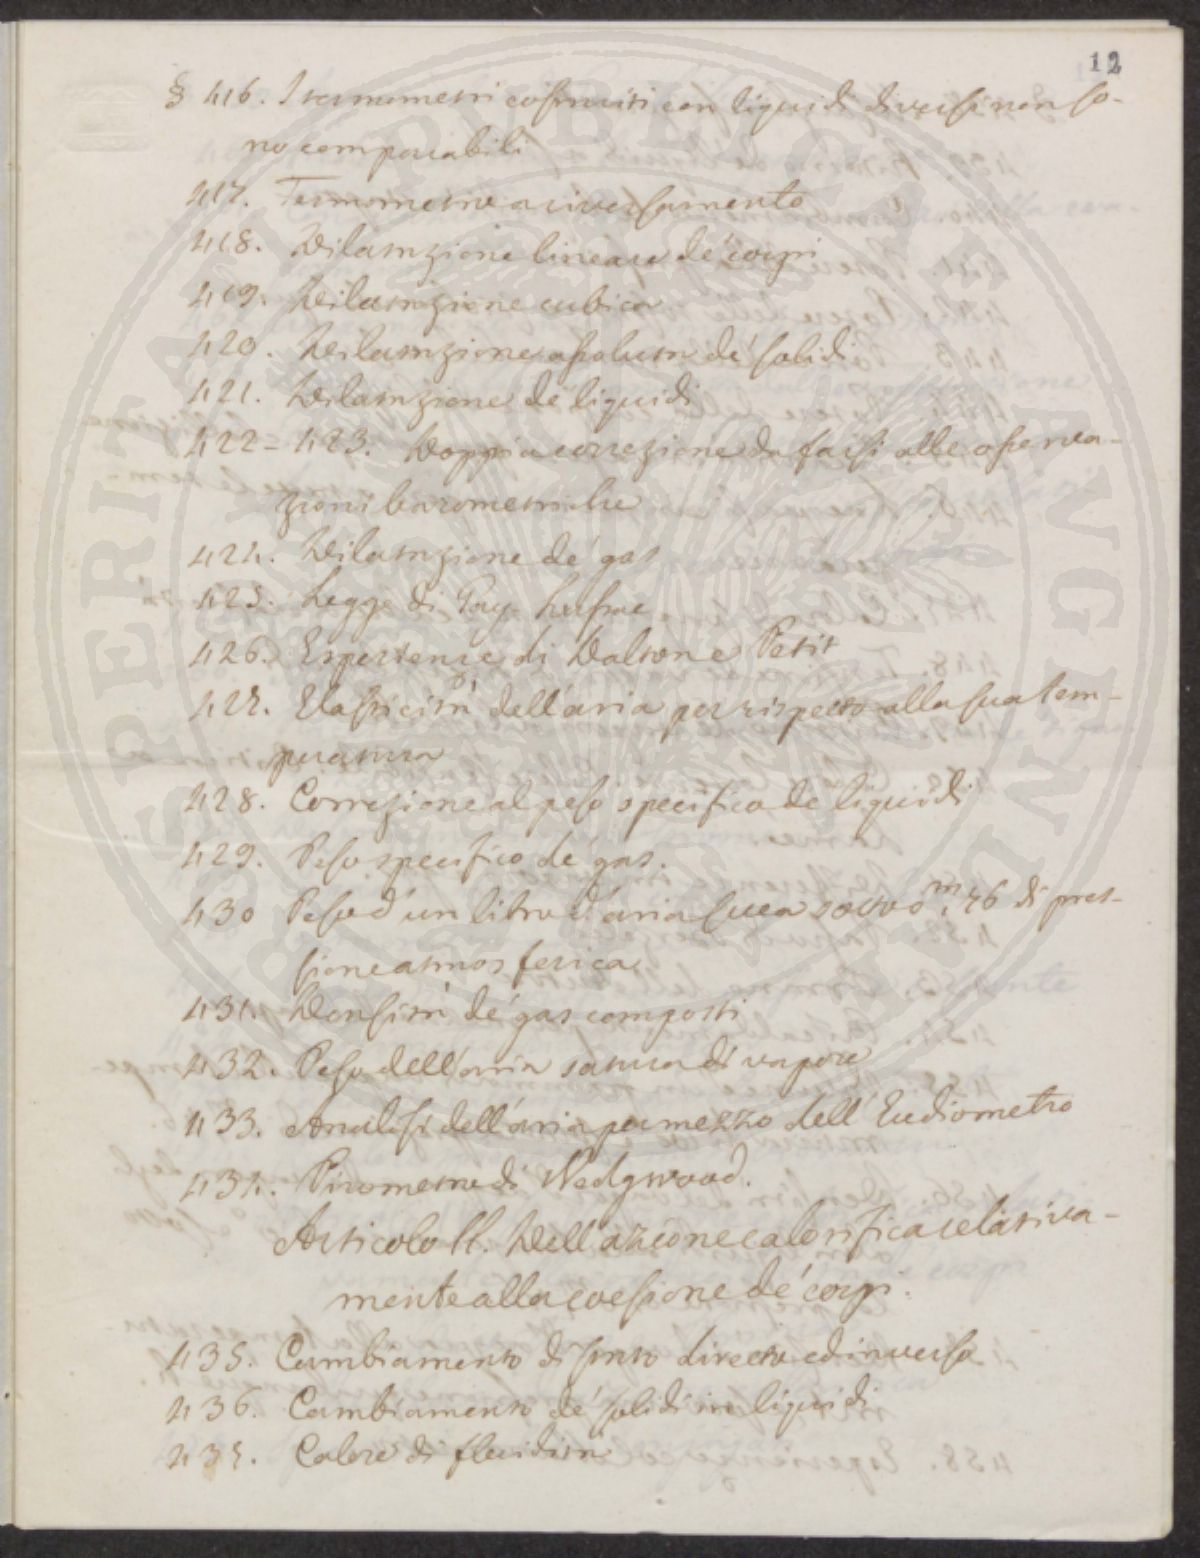 12
§ 416. I termometri costruiti con liquidi diversi non so-
no comparabili
417. Termometro a riversamento
418. Dilatazione lineare de' corpi
419. Dilatazione cubica
420. Dilatazione assoluta de' solidi
421. Dilatazione de' liquidi
422 = 423. Doppia correzione da farsi alle osserva-
zioni barometriche
424. Dilatazione de' gas
425. Legge di Gay-Lussac
426. Esperienze di Dalton e Petit
427. Elasticità dell'aria per rispetto alla sua tem-
peratura
428. Correzione al peso specifico de' liquidi
429. Peso specifico de' gas.
430 Peso d'un litro d'aria secca sotto 0,m 76 di pres-
sione atmosferica
431. Densità de' gas composti
432. Peso dell'aria satura di vapore
433. Analisi dell'aria per mezzo dell'Eudiometro
434. Pirometro di Wedgwood.
Articolo II. Dell'azione calorifica relativa-
mente alla coesione de' corpi.
435. Cambiamento di stato diretto ed inverso
436. Cambiamento de' solidi in liquidi
437. Calore di fluidità